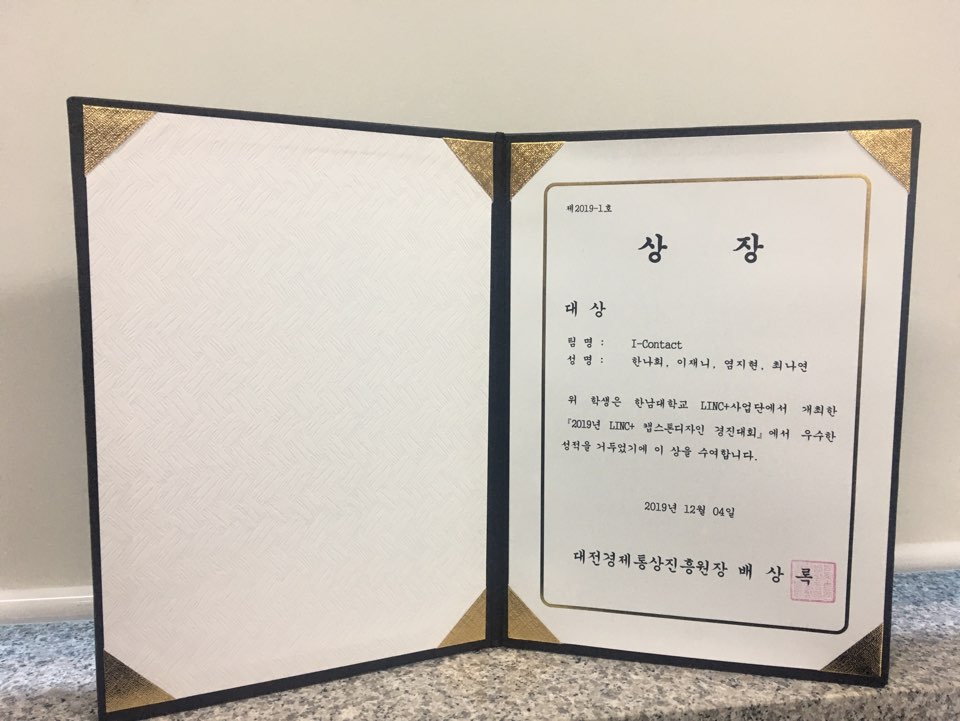 제2019-1호
상 장
대 상
팀 명 : I-Contact
성 명 : 한나희, 이재니, 염지현, 최나연
위 학생은 한남대학교 LINC+사업단에서 개최한
『2019년 LINC+ 캡스톤디자인 경진대회』에서 우수한
성적을 거두었기에 이 상을 수여합니다.
2019년 12월 04일
대전경제통상진흥원장 배 상 록